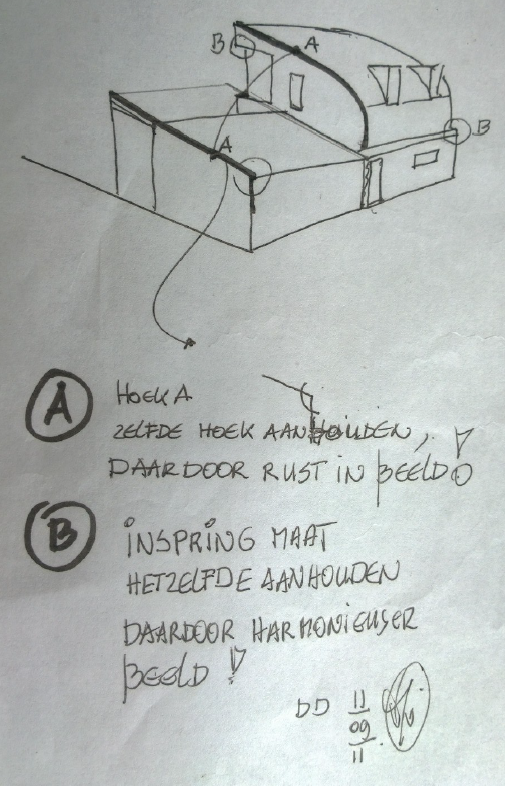 B
A
B
A
A
HOEK A
ZELFDE HOEK AANHOUDEN,
DAARDOOR RUST IN BEELD!
B
INSPRING MAAT
HETZELFDE AANHOUDEN
DAARDOOR HARMONIEUSER
BEELD!
DD 11
09
11